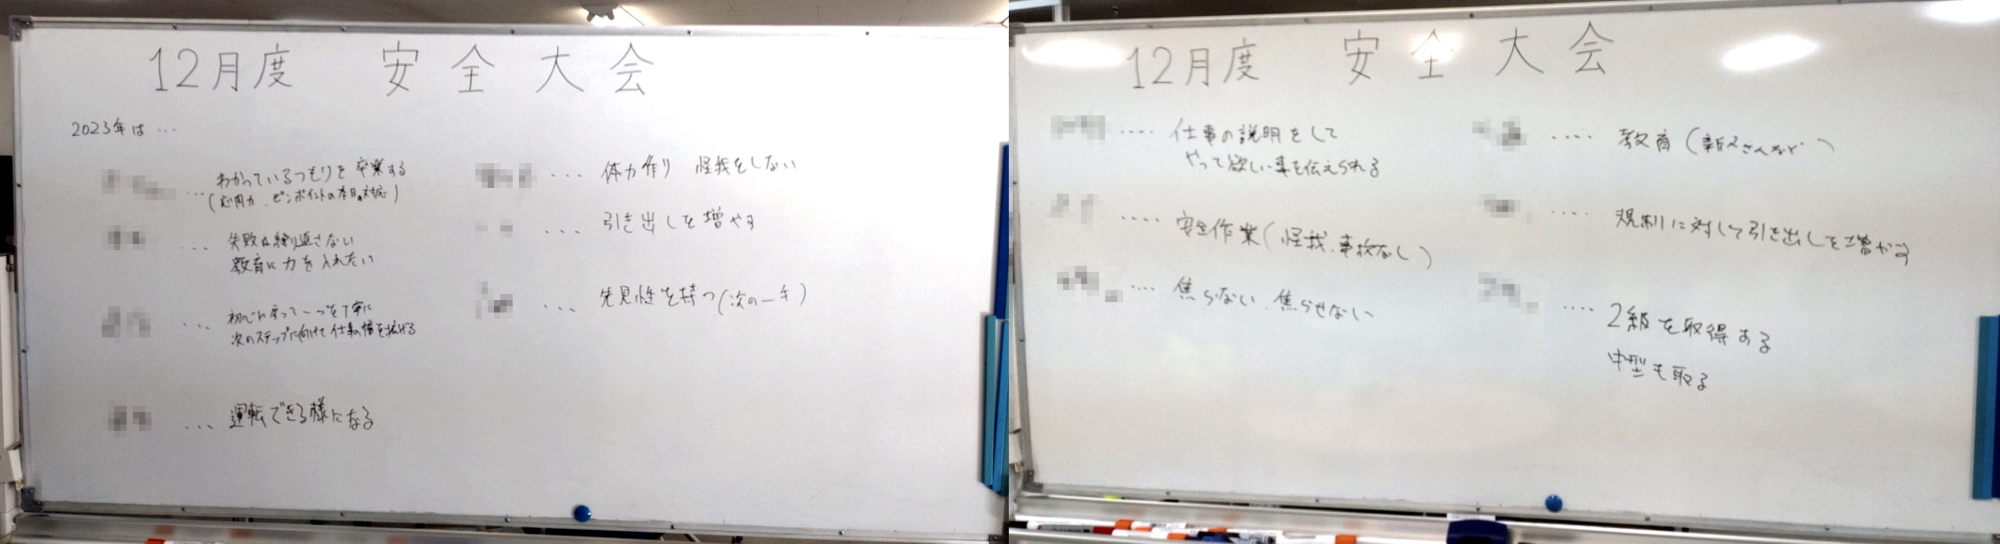 12月度 安全大会
2023年は…
… わかっているつもりを卒業する
(応用力、ピンポイントの本日の対応)
… 失敗は繰り返さない
教育に力を入れたい
… 初心に戻って一つを丁寧に
次のステップに向けて仕事の幅を拡げる
… 運転できる様になる
… 体力作り 怪我をしない
… 引き出しを増やす
… 先見性を持つ(次の一手)
12月度 安全大会
…. 仕事の説明をして
やって欲しい事を伝えられる
…. 安全作業(怪我、事故なし)
…. 焦らない、焦らせない
…. 教育(新人さんなど)
…. 規制に対して引き出しを増やす
…. 2級を取得する
中型も取る